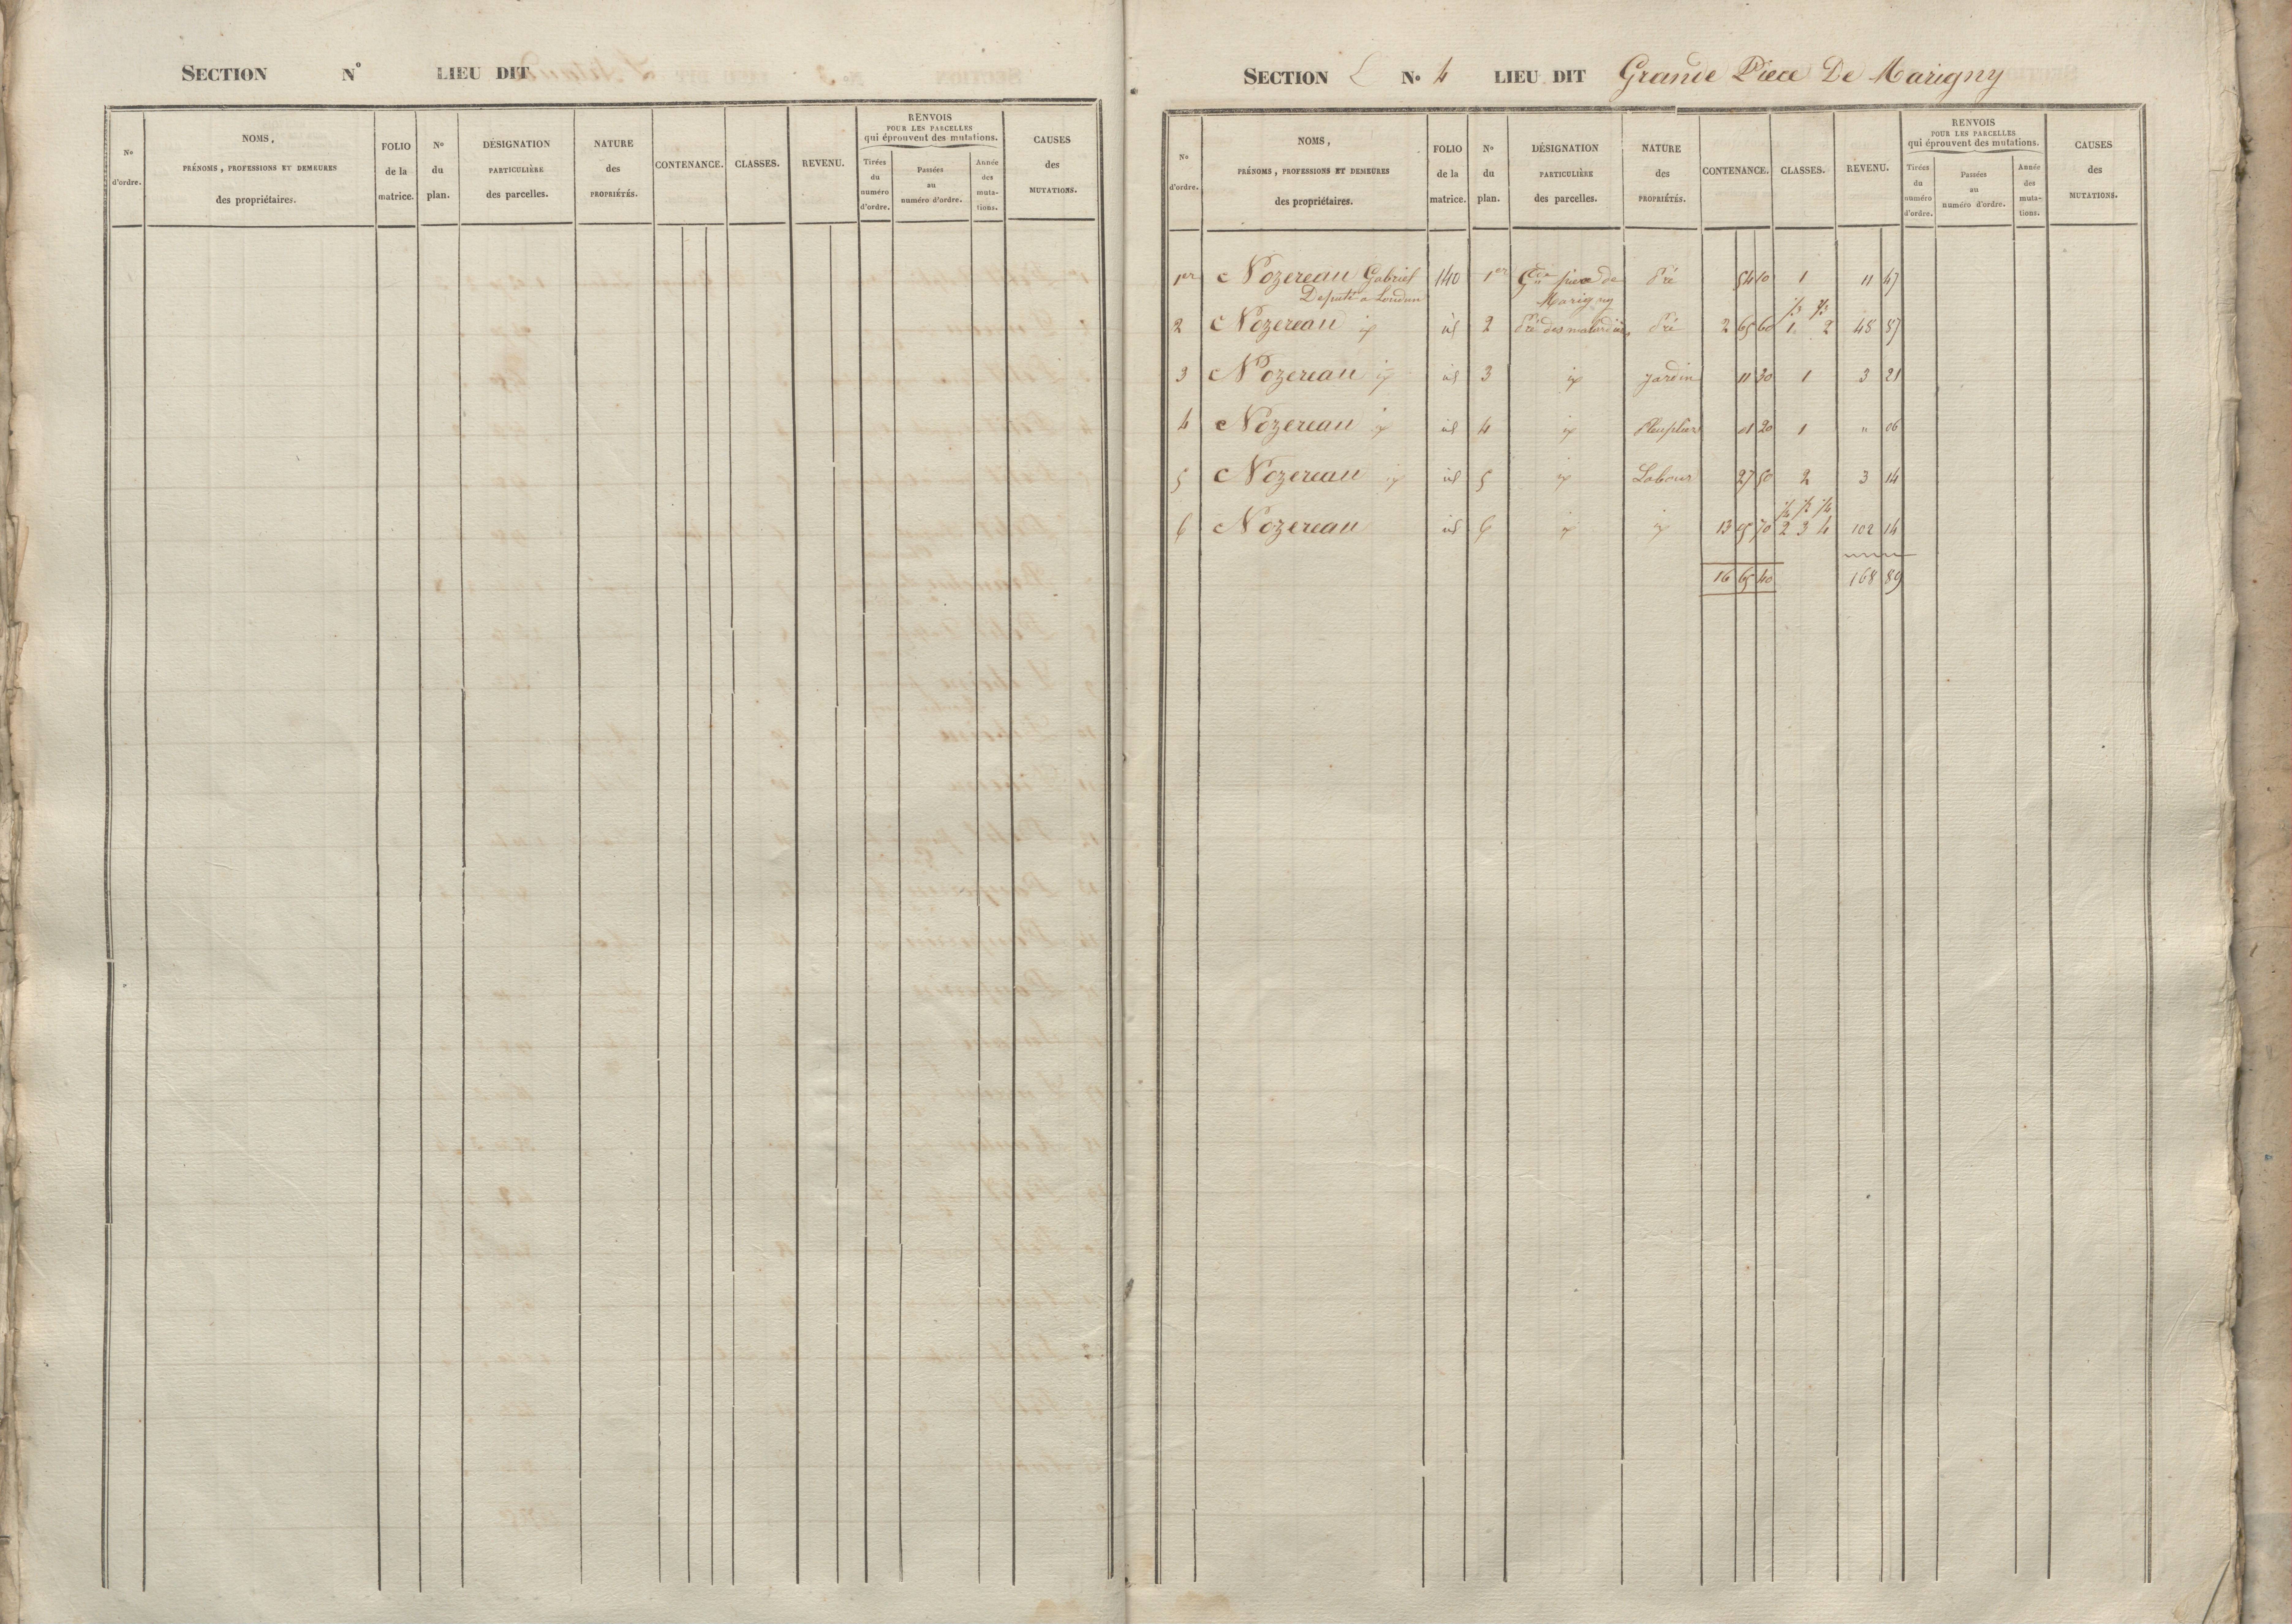 SECTION N° LIEU DIT
N° d'ordre.
NOMS, PRÉNOMS, PROFESSIONS ET DEMEURES des propriétaires.
FOLIO de la matrice.
N° du plan.
DÉSIGNATION PARTICULIÈRE des parcelles.
NATURE des PROPRIÉTÉS.
CONTENANCE.
CLASSES.
REVENU.
RENVOIS POUR LES PARCELLES qui éprouvent des mutations.
Tirées du numéro d'ordre.
Passées au numéro d'ordre.
Année des muta-tions.
CAUSES des MUTATIONS.
SECTION L N° 4 LIEU DIT Grande Piece De Marigny
N° d'ordre.
NOMS, PRÉNOMS, PROFESSIONS ET DEMEURES des propriétaires.
FOLIO de la matrice.
N° du plan.
DÉSIGNATION PARTICULIÈRE des parcelles.
NATURE des PROPRIÉTÉS.
CONTENANCE.
CLASSES.
REVENU.
RENVOIS POUR LES PARCELLES qui éprouvent des mutations.
Tirées du numéro d'ordre.
Passées au numéro d'ordre.
Année des muta-tions.
CAUSES des MUTATIONS.
1er Nozereau Gabriel 140 1er Gde piece de Pré 54 10 1 11 47
Député a Loudun Marigny
2 Nozereau id 2 Pré des Pré 2 65 60 1 2 48 87
3 Nozereau id 3 jardin 11 30 1 3 21
4 Nozereau id 4 Peuplier 01 20 1 " 06
5 Nozereau id 5 Labour 27 50 2 3 14
6 Nozereau id 6 13 05 70 1/4 1/2 1/4 2 3 4 102 14
16 65 40 168 89